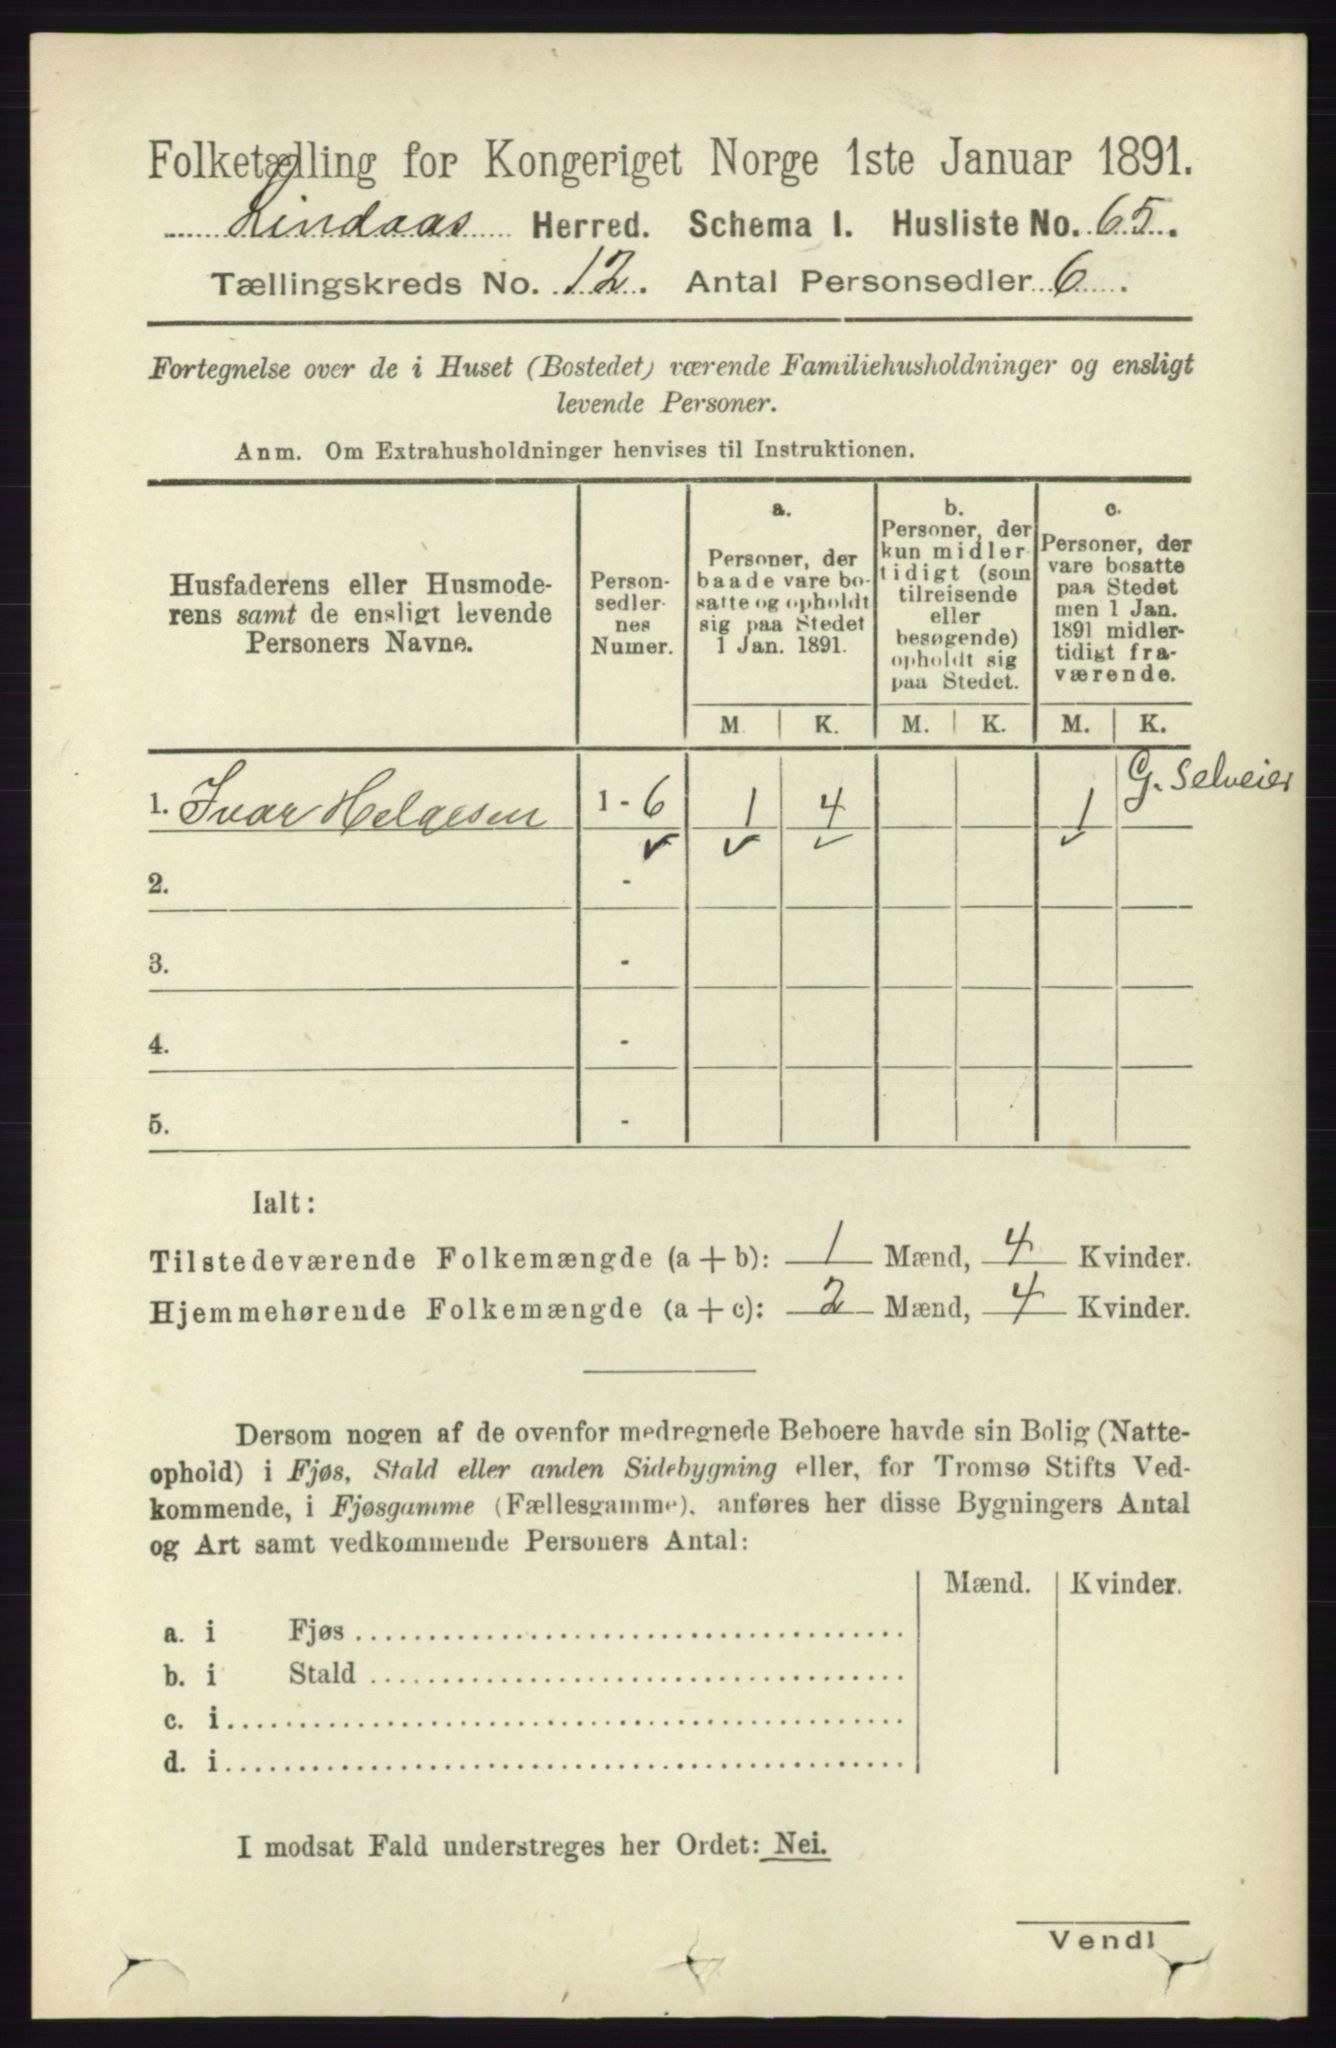 Folketælling for Kongeriget Norge 1ste Januar 1891.
Lindaas Herred. Schema I. Husliste No. 65.
Tællingskreds No. 12. Antal Personsedler 6.
Fortegnelse over de i Huset (Bostedet) værende Familiehusholdninger og ensligt
levende Personer.
Anm. Om Extrahusholdninger henvises til Instruktionen.
Husfaderens eller Husmode-
rens samt de ensligt levende
Personers Navne.
Person-
sedler-
nes
Numer.
a.
Personer, der
baade vare bo-
satte og opholdt
sig paa Stedet
1 Jan. 1891.
b.
Personer, der
kun midler-
tidigt (som
tilreisende
eller
besøgende)
opholdt sig
paa Stedet.
c.
Personer, der
vare bosatte
paa Stedet
men 1 Jan.
1891 midler-
tidigt fra-
værende.
M. K. M. K. M. K.
G. Selveier
1. Ivar Helgesen 1 - 6 1 4 1
2. -
3. -
4. -
5. -
Ialt:
Tilstedeværende Folkemængde (a + b): 1 Mænd, 4 Kvinder.
Hjemmehørende Folkemængde (a + c): 2 Mænd, 4 Kvinder.
Dersom nogen af de ovenfor medregnede Beboere havde sin Bolig (Natte-
ophold) i Fjøs, Stald eller anden Sidebygning eller, for Tromsø Stifts Ved-
kommende, i Fjøsgamme (Fællesgamme), anføres her disse Bygningers Antal
og Art samt vedkommende Personers Antal:
Mænd. Kvinder.
a. i Fjøs
b. i Stald
c. i
d. i
I modsat Fald understreges her Ordet: Nei.
Vend!